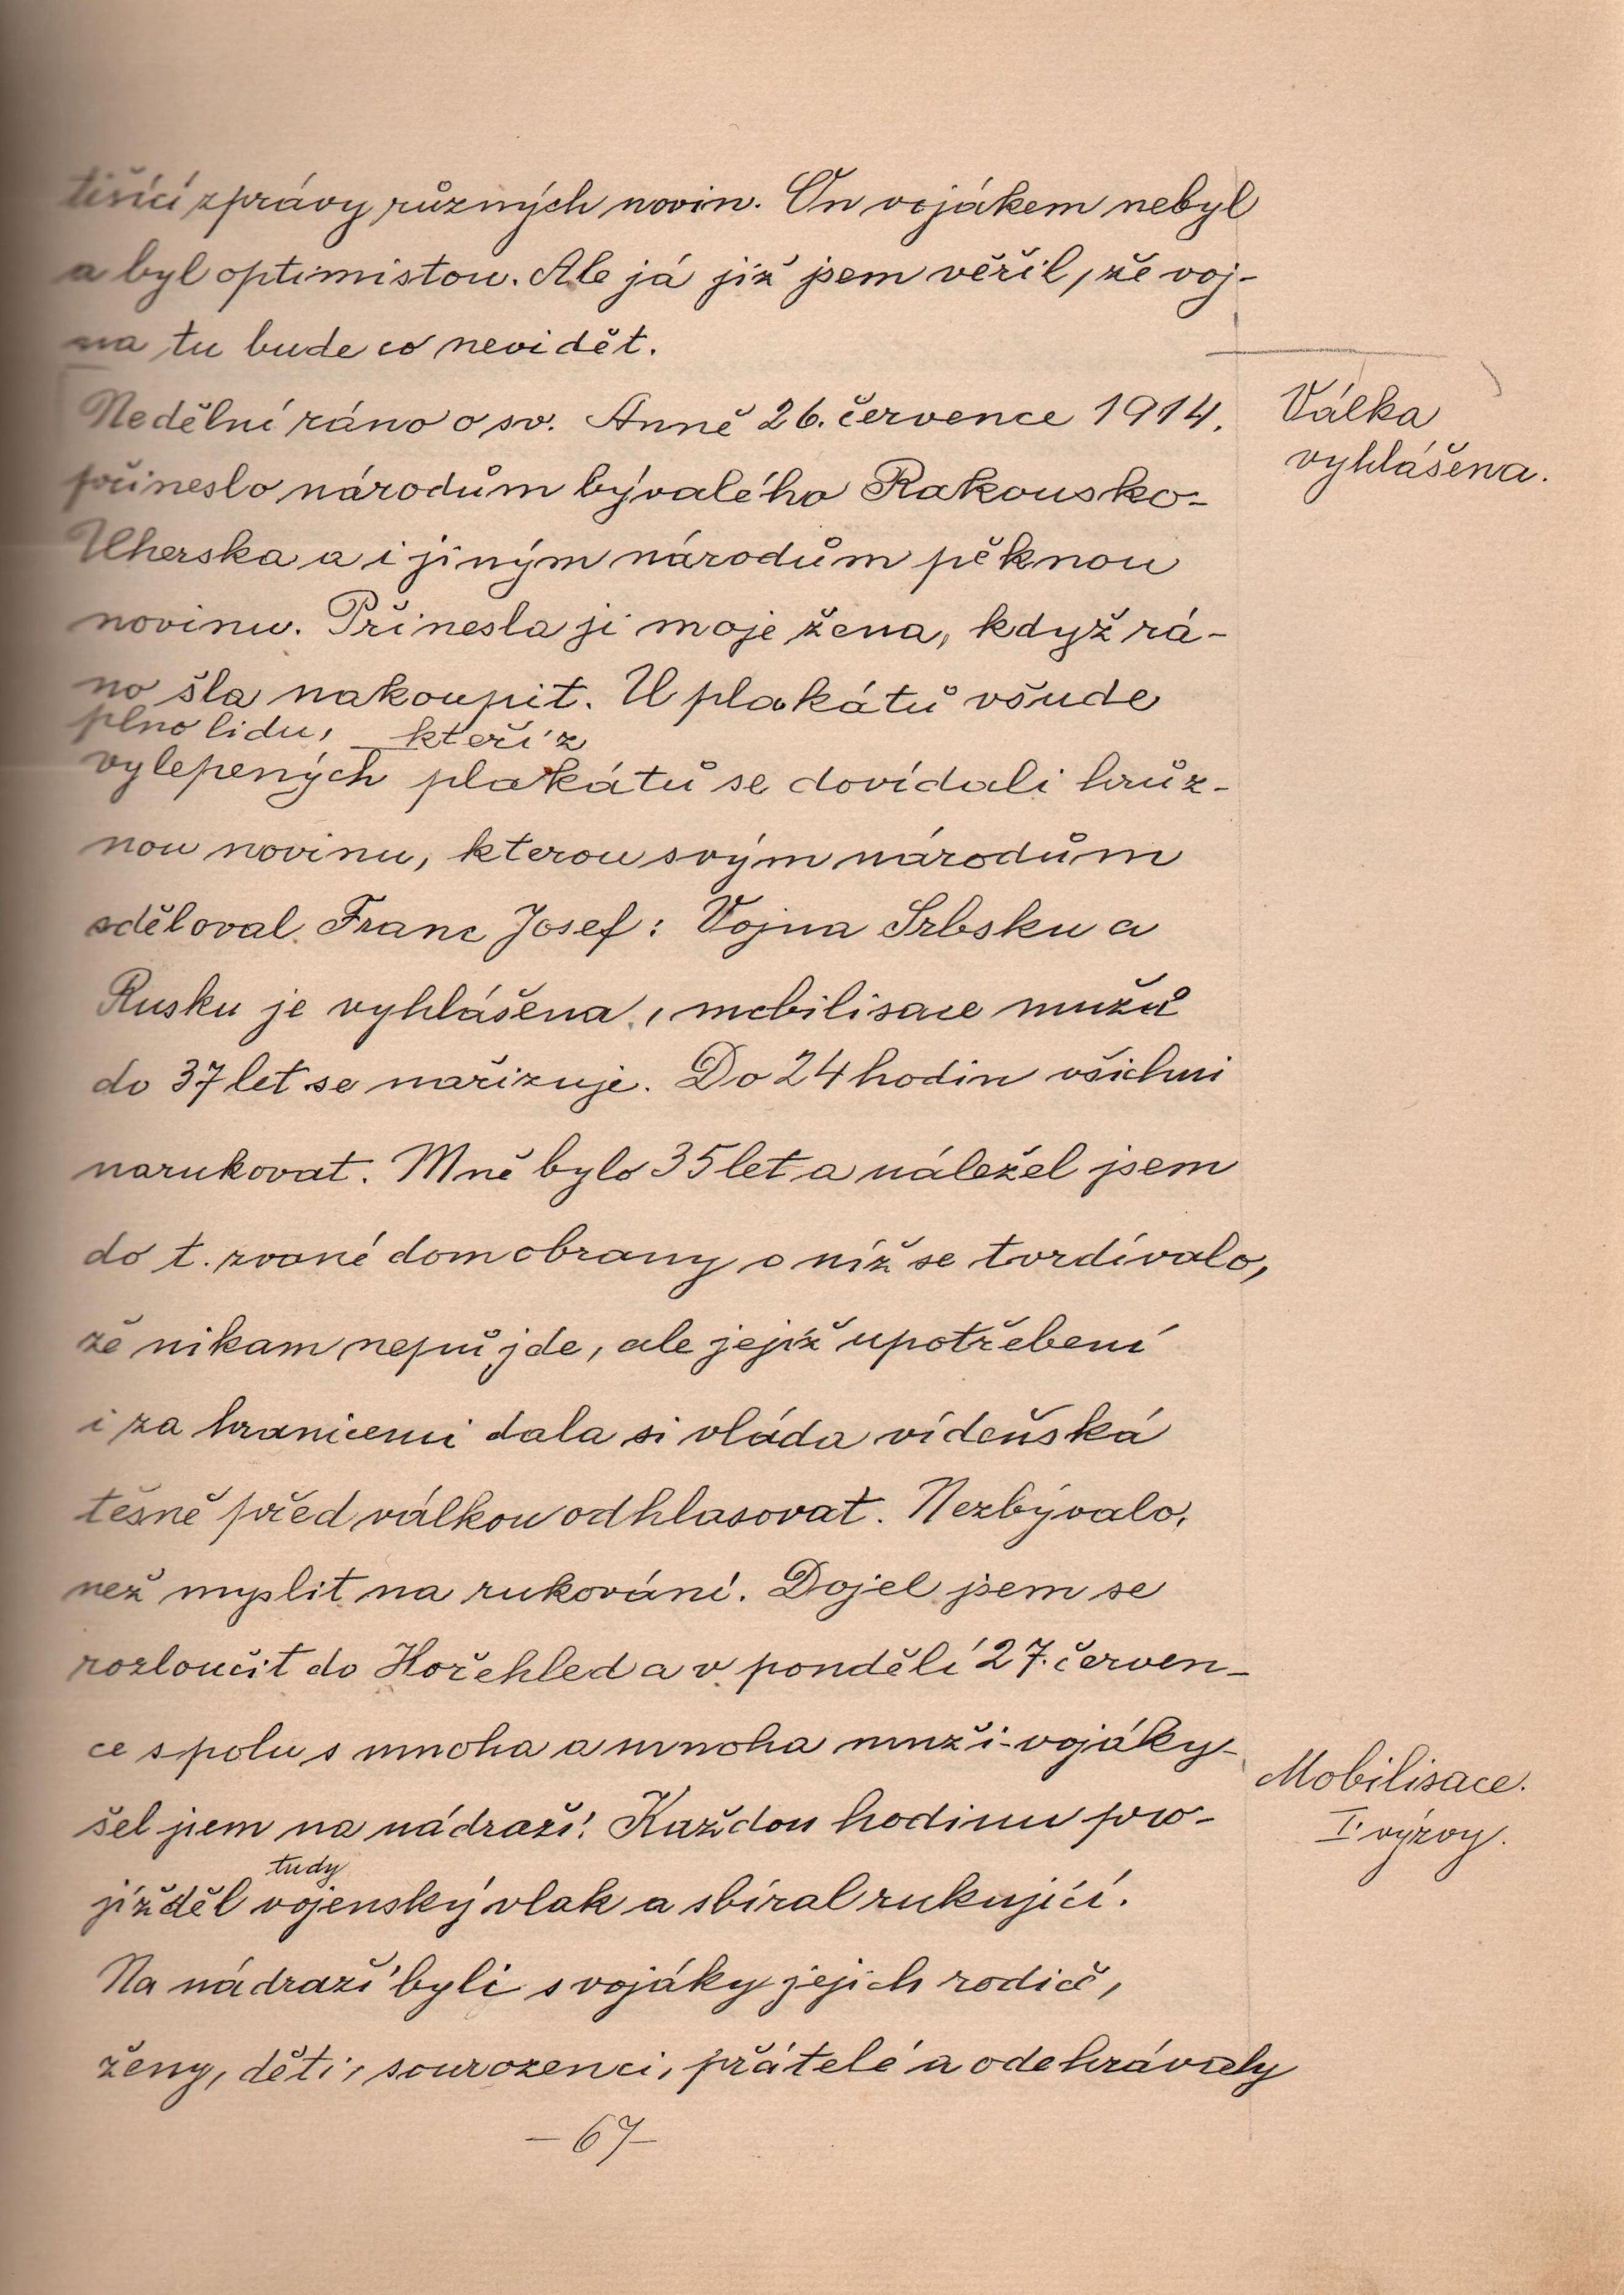 tišící zprávy různých novin. On vojákem nebyl
a byl optimistou. Ale já již jsem věřil, že voj-
na tu bude co nevidět.
Nedělní ráno o sv. Anně 26. července 1914.
Válka
vyhlášena.
přineslo národům bývalého Rakousko-
Uherska a i jiným národům pěknou
novinu. Přinesla ji moje žena, když rá-
no šla nakoupit. U plakátů všude
plno lidu, kteří z
vylepených plakátů se dovídali hrůz-
nou novinu, kterou svým národům
sděloval Franc Josef: Vojna Srbsku a
Rusku je vyhlášena, mobilisace mužů
do 37 let se nařizuje. Do 24 hodin všichni
narukovat. Mně bylo 35 let a náležel jsem
do t. zvané domobrany o níž se tvrdívalo,
že nikam nepůjde, ale jejíž upotřebení
i za hranicemi dala si vláda vídeňská
těsně před válkou odhlasovat. Nezbývalo,
než myslit na rukování. Dojel jsem se
rozloučit do Hořehled a v pondělí 27. červen-
ce spolu s mnoha a mnoha muži-vojáky-
šel jsem na nádraží! Každou hodinu pro-
Mobilisace.
I. výzvy.
tudy
jížděl vojenský vlak a sbíral rukující.
Na nádraží byli s vojáky jejich rodič,
ženy, děti, sourozenci, přátelé a odehrávaly
-67-